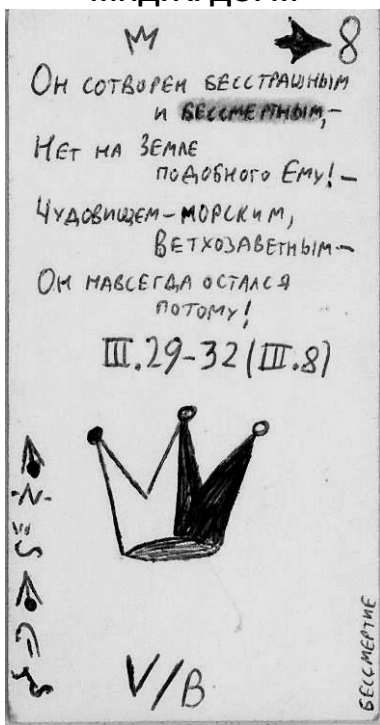 8
Он сотворен бесстрашным
и бессмертным,–
Нет на Земле
подобного Ему!–
Чудовищем–морским,
Ветхозаветным–
Он навсегда остался
потому!
III.29-32 (III.8)
V/B
БЕССМЕРТИЕ